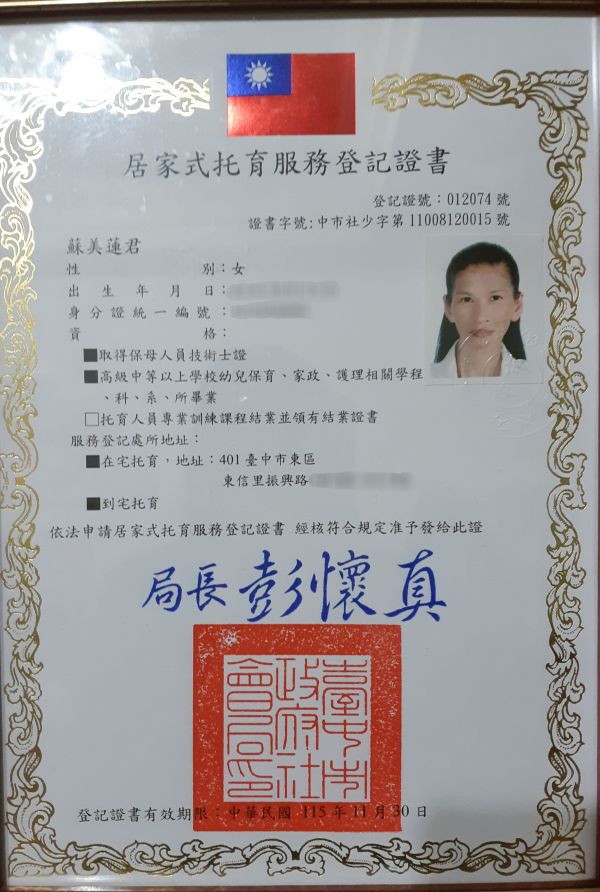 居家式托育服務登記證書
登記證號：012074 號
證書字號:中市社少字第 11008120015 號
蘇美蓮君
性別：女
出生年月日：
身分證統一編號：
資格：
■取得保母人員技術士證
■高級中等以上學校幼兒保育、家政、護理相關學程
、科、系、所畢業
□托育人員專業訓練課程結業並領有結業證書
服務登記處所地址：
■在宅托育，地址：401 臺中市東區
東信里振興路
■到宅托育
依法申請居家式托育服務登記證書 經核符合規定准予發給此證
局長彭懷真
臺中市政府社會局印
登記證書有效期限：中華民國 115 年 11 月 30 日